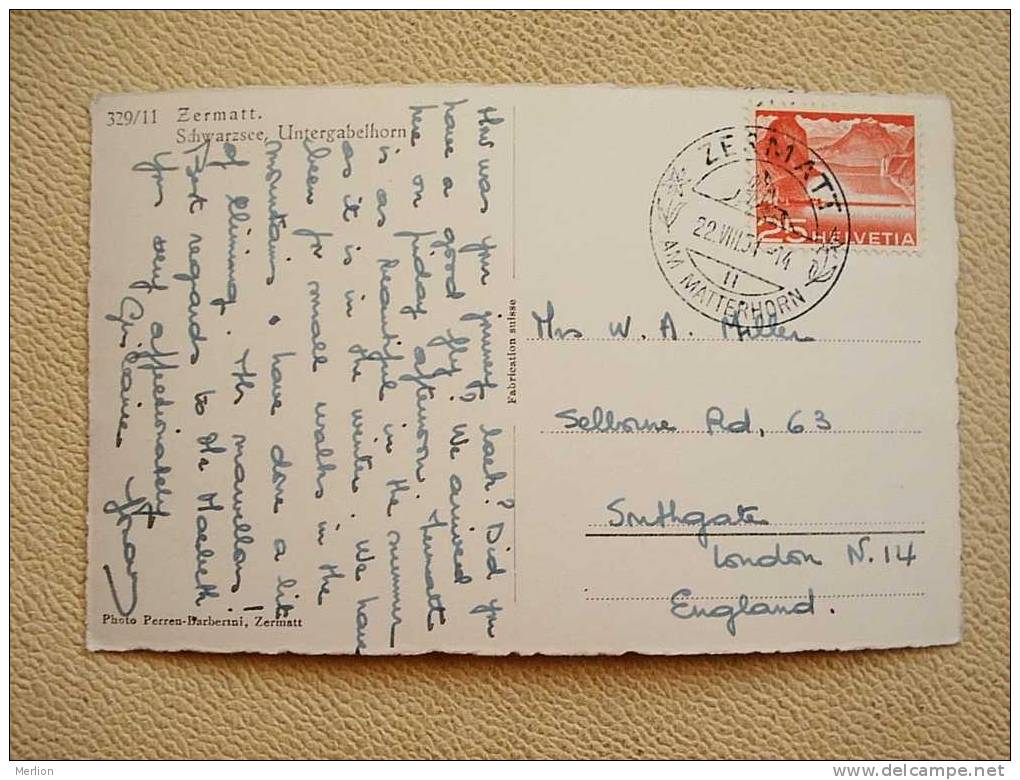 329/11 Zermatt.
Schwarzsee, Untergabelhorn
How was you journey back? Did you
have a good fly? We arrived
here on friday afternoon. Zermatt
is as beautiful in the summer
as it is in the winter. We have
been for small walks in the
mountains & have done a litt
of climing. It's marvellous!
Best regards to Mr Macbeth
Your very affectionately
Ghislaine
Photo Perren-Barberini, Zermatt
Fabrication suisse
ZERMATT
22.VIII.51-14
11
AM MATTERHORN
25 HELVETIA
Mrs W. A. Miller
Selborne Rd, 63
Southgate
London N.14
England.
Merlion
delcampe.net